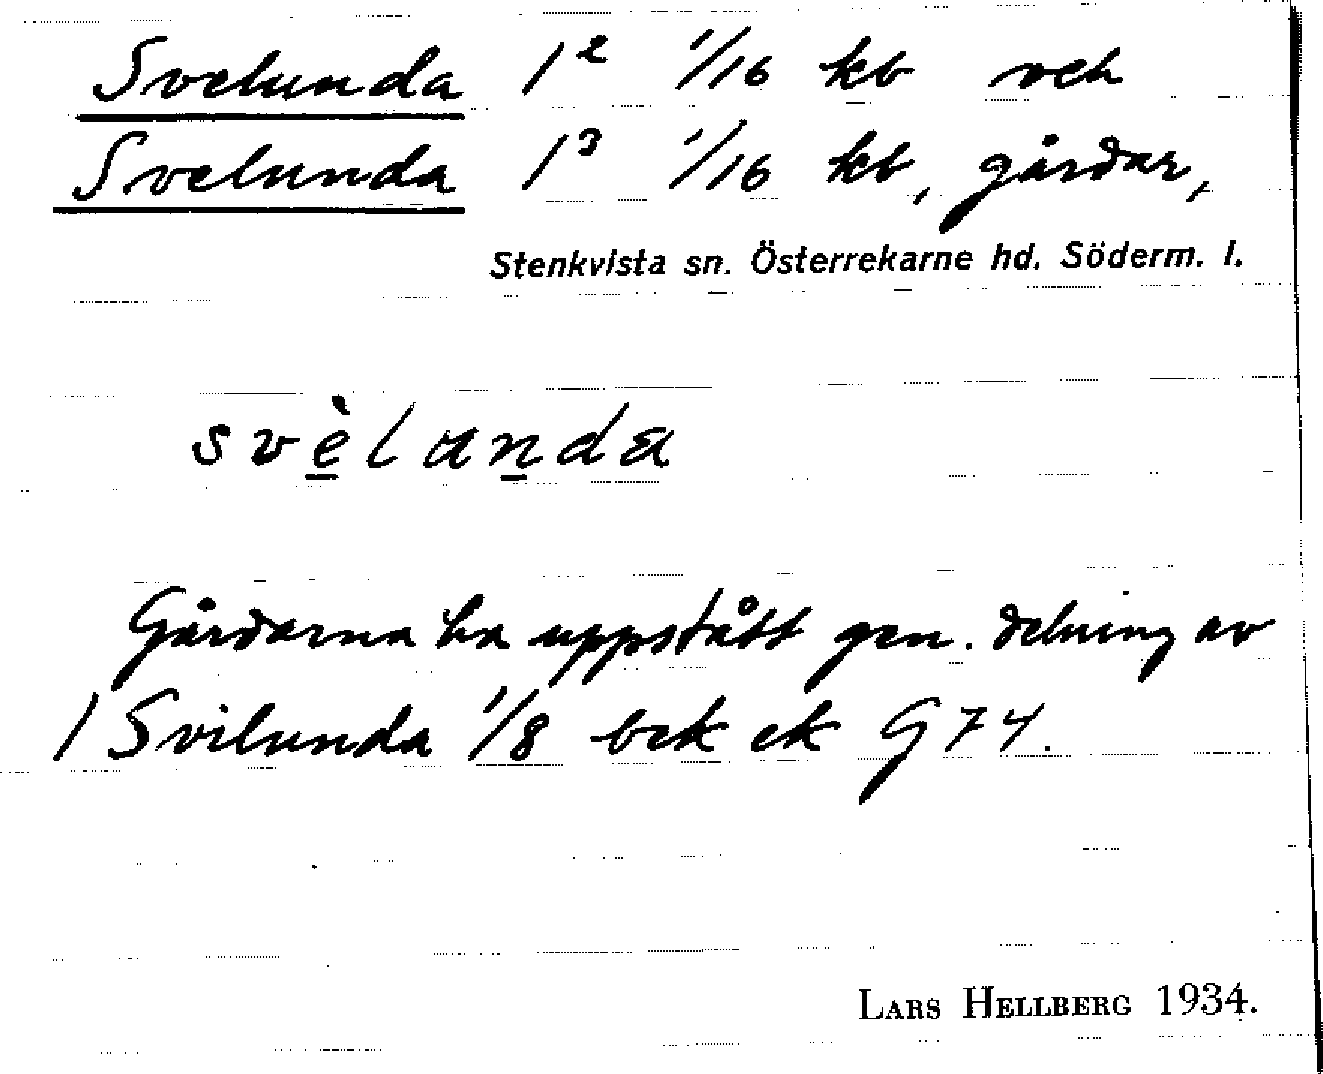 Svelunda 1² 1/16 kb och
Svelunda 1³ 1/16 kb, gårdar,
Stenkvista sn. Österrekarne hd. Söderm. l.
svèlanda
Gårdarna ha uppstått gen. delning av
1 Svilunda 1/8 bek ek G 74.
LARS HELLBERG 1934.